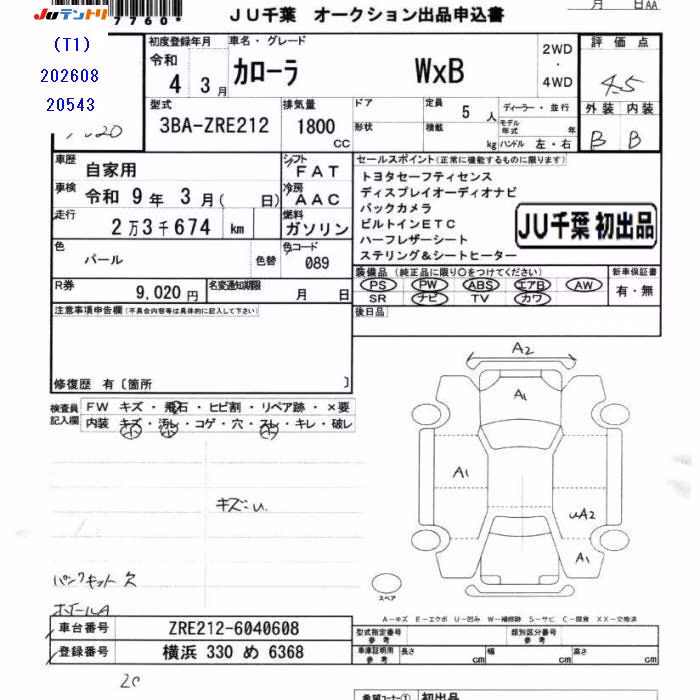 Juテントリ
7760*
月 日AA
JU千葉 オークション出品申込書
(T1)
202608
20543
初度登録年月
令和
4年 3月
車名・グレード
カローラ WxB
2WD
・
4WD
評価点
4.5
外装 内装
B B
型式
3BA-ZRE212
排気量
1800 CC
ドア
形状
定員 5 人
積載 kg
ディーラー・並行
モデル年式 年
ハンドル 左・右
車歴
自家用
シフト
FAT
車検
令和 9年 3月( 日)
冷房
AAC
走行
2万3千674 km
燃料
ガソリン
色
パール
色替
色コード
089
R券
9,020円
名変通知期限
月 日
セールスポイント(正常に機能するものに限ります)
トヨタセーフティセンス
ディスプレイオーディオナビ
バックカメラ
ビルトインETC
ハーフレザーシート
ステリング&シートヒーター
JU千葉 初出品
装備品 (純正品に限り○をつけてください)
PS PW ABS エアB AW
SR ナビ TV カワ
新車保証書
有・無
後日品
注意事項申告欄(不具合内容等は具体的に記入して下さい)
修復歴 有〔箇所 〕
検査員記入欄
FW キズ・飛石・ヒビ割・リペア跡・×要
内装 キズ・汚レ・コゲ・穴・スレ・キレ・破レ
A2
A1
A1
UA2
A1
パンクキット欠
スペア
A-キズ E-エクボ U-凹み W-補修跡 S-サビ C-腐食 XX-交換済
車台番号 ZRE212-6040608
登録番号 横浜 330 め 6368
型式指定番号 参考
類別区分番号 参考
車庫証明用 参考
長さ cm 幅 cm 高さ cm
20
希望コーナー① 初出品